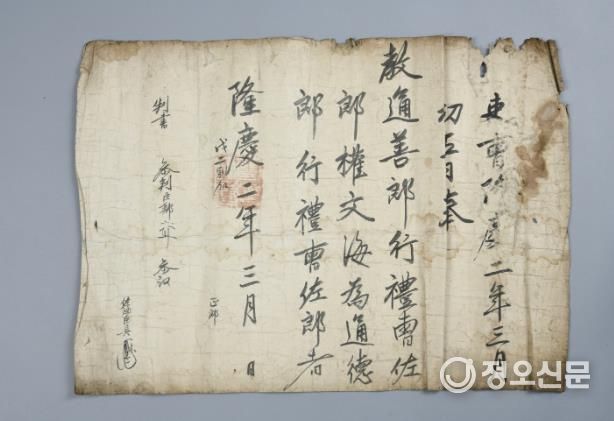 吏曹隆慶二年三月
初五日奉
教通善郎行禮曹佐
郎權文海為通德
郎行禮曹佐郎者
隆慶二年三月 日
判書 參判臣 參議 正郎
정오신문